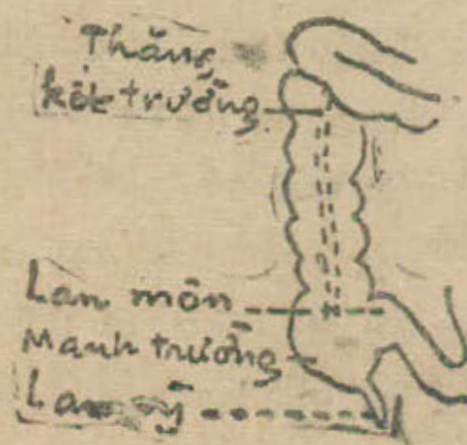 Thăng
kết trường
Lan môn
Manh trường
Lan vỹ